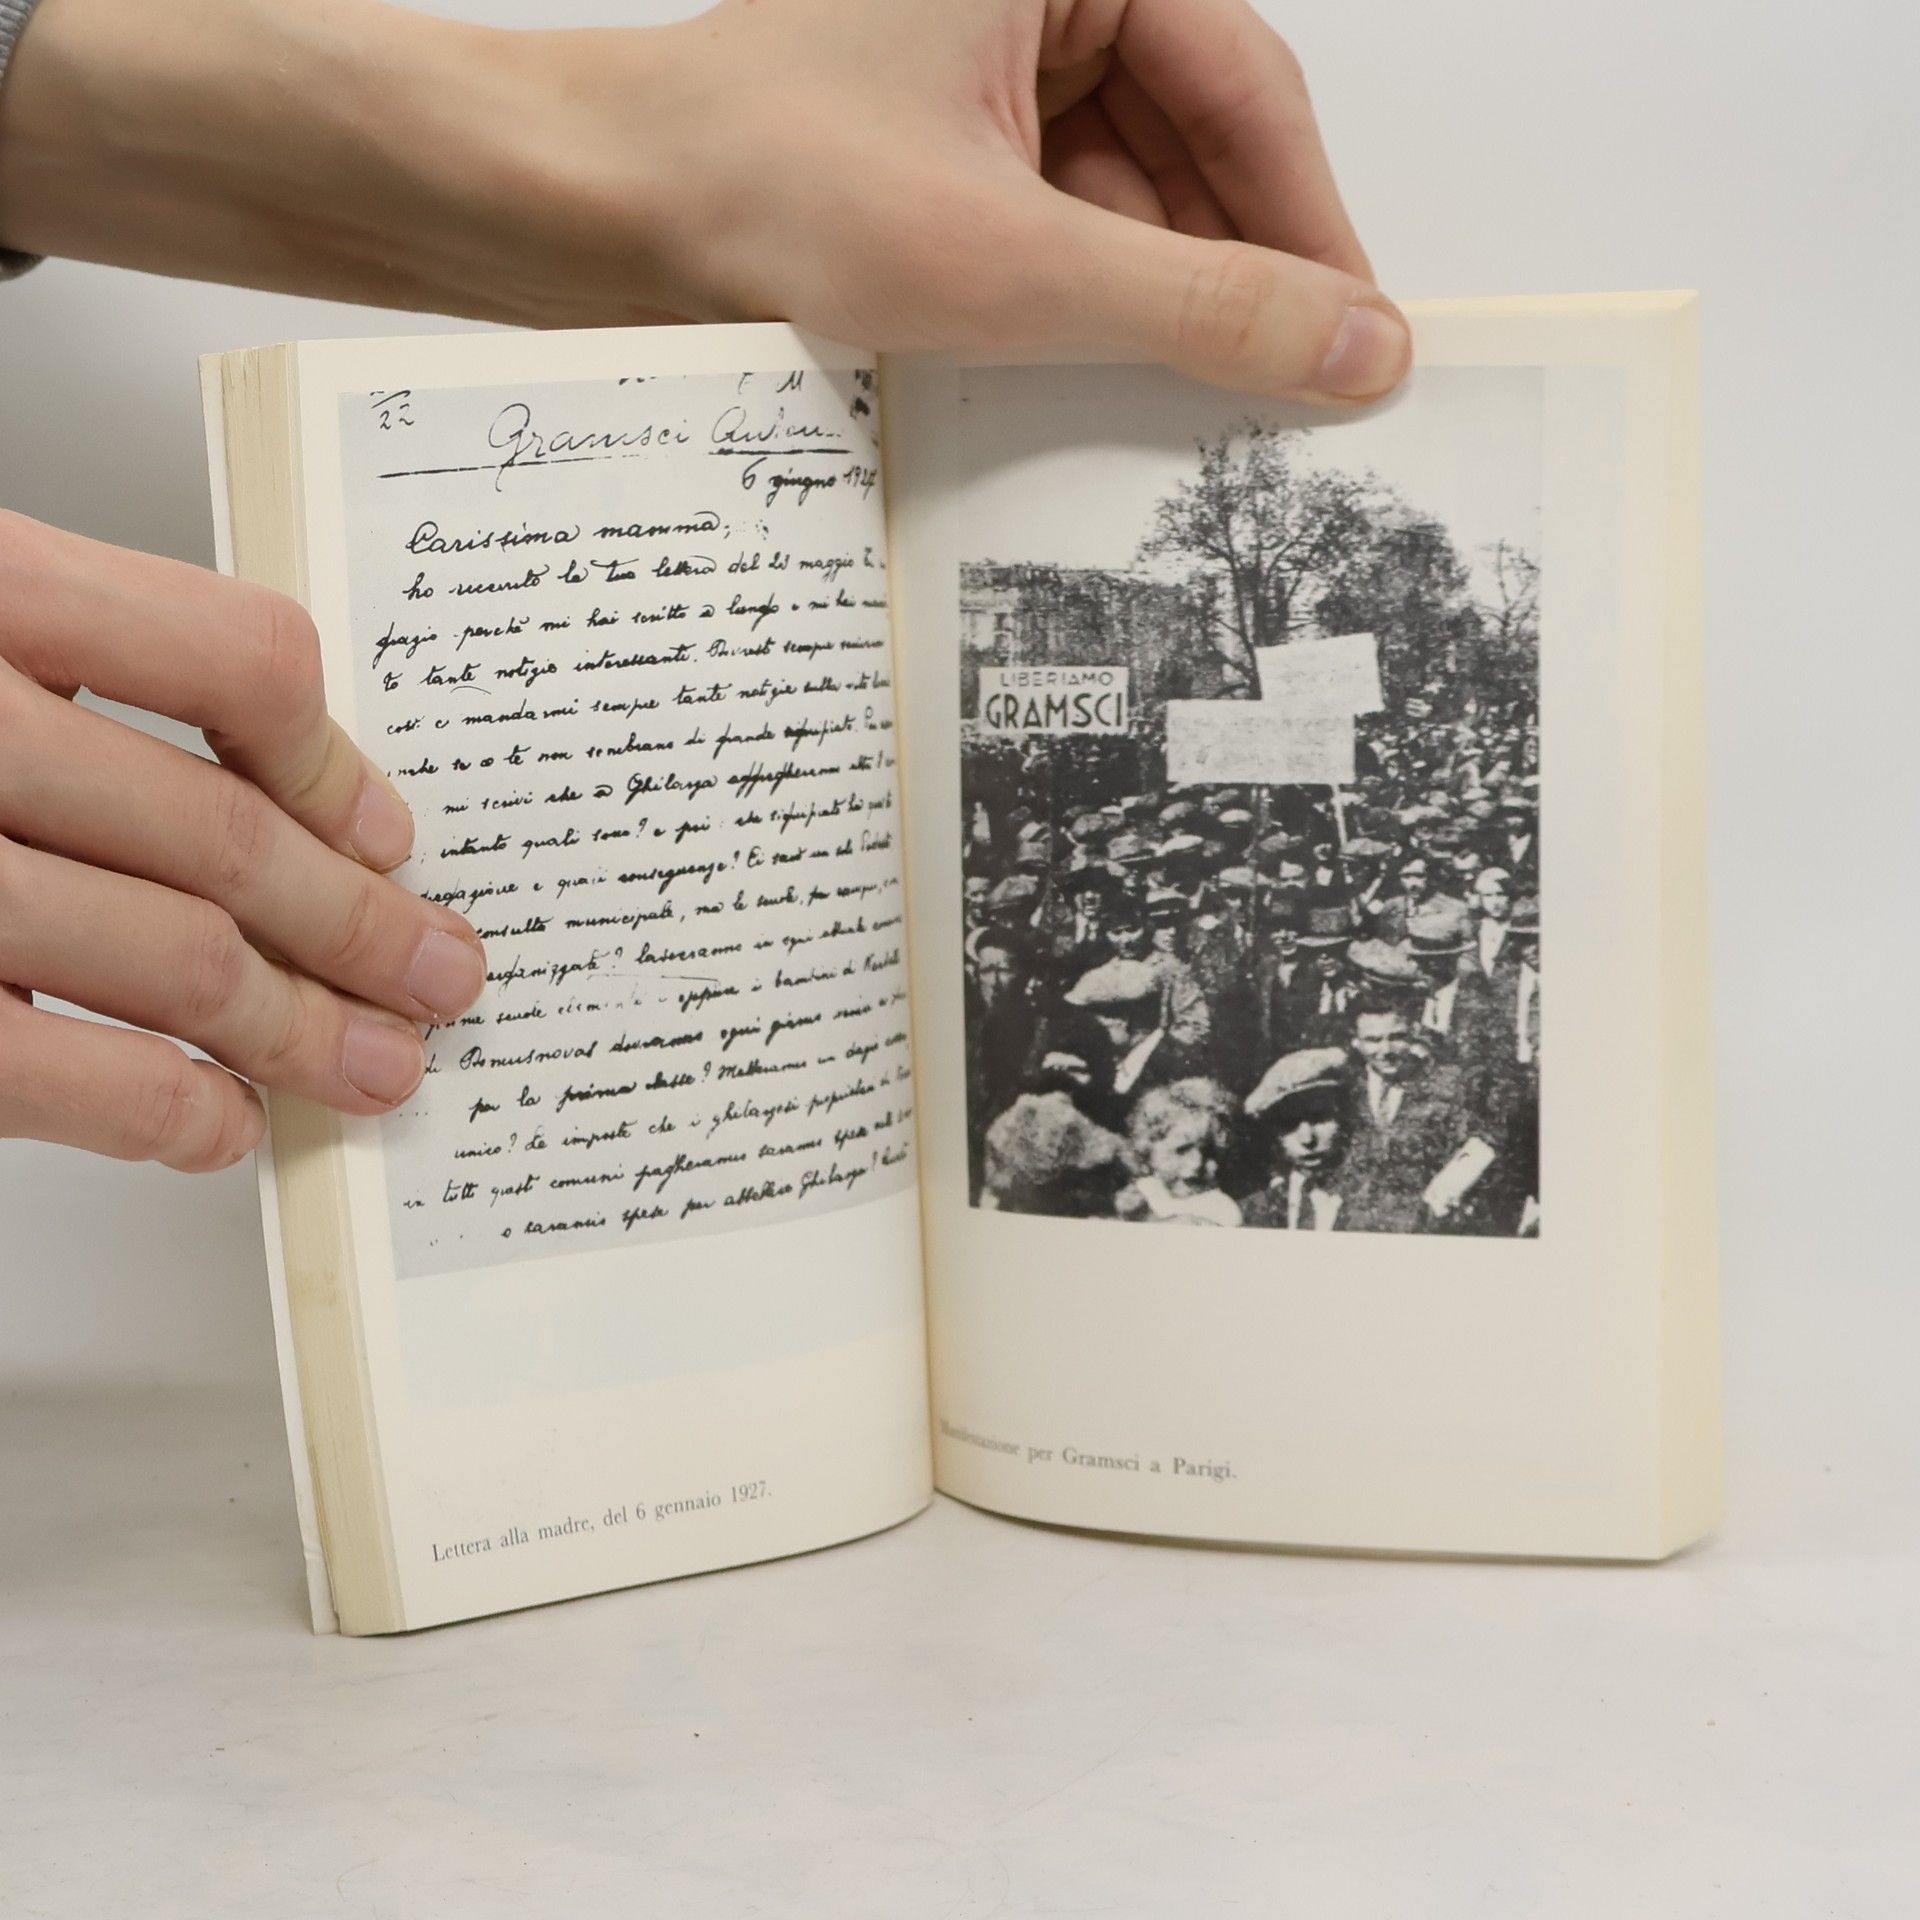 22
Gramsci
6 giugno 1927
Carissima mamma,
ho ricevuto la tua lettera del 23 maggio
grazio perchè mi hai scritto a lungo e mi hai
to tante notizie interessanti. Dovresti sempre
così e mandarmi sempre tante notizie sulla vita
anche se a te non sembrano di grande significato.
mi scrivi che a Ghilarza aggregheranno altri
; intanto quali sono? e poi: che significato ha
e quali conseguenze? Ci sarà un solo Podestà
consulta municipale, ma le scuole, per esempio,
organizzate? Lasceranno in ogni
scuole elementari o oppure i bambini di
di Domusnovas dovranno ogni giorno venire a
per la prima classe? Metteranno un dazio
unico? Le imposte che i ghilarzesi proprietari di
in tutti questi comuni pagheranno saranno spese
o saranno spese per abbellire Ghilarza?
Lettera alla madre, del 6 gennaio 1927.
LIBERIAMO
GRAMSCI
Manifestazione per Gramsci a Parigi.